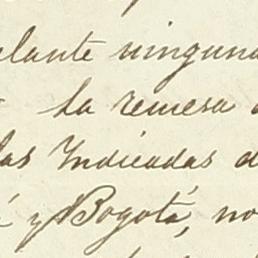 elante ninguna
la remesa
las Indicadas d
é y Bogotá, no